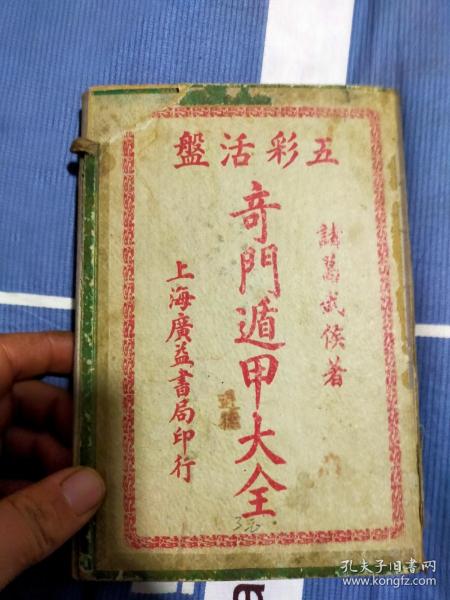 五彩活盤
諸葛武侯著
奇門遁甲大全
上海廣益書局印行
孔夫子旧书网
www.kongfz.com